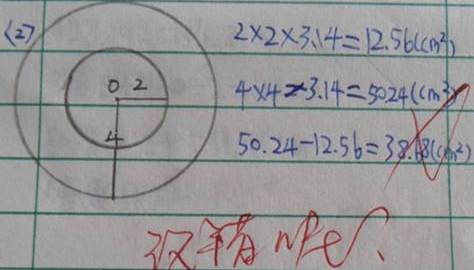 (2)
0 2
4
2×2×3.14=12.56(cm²)
4×4×3.14=5024(cm²)
50.24-12.56=38.68(cm²)